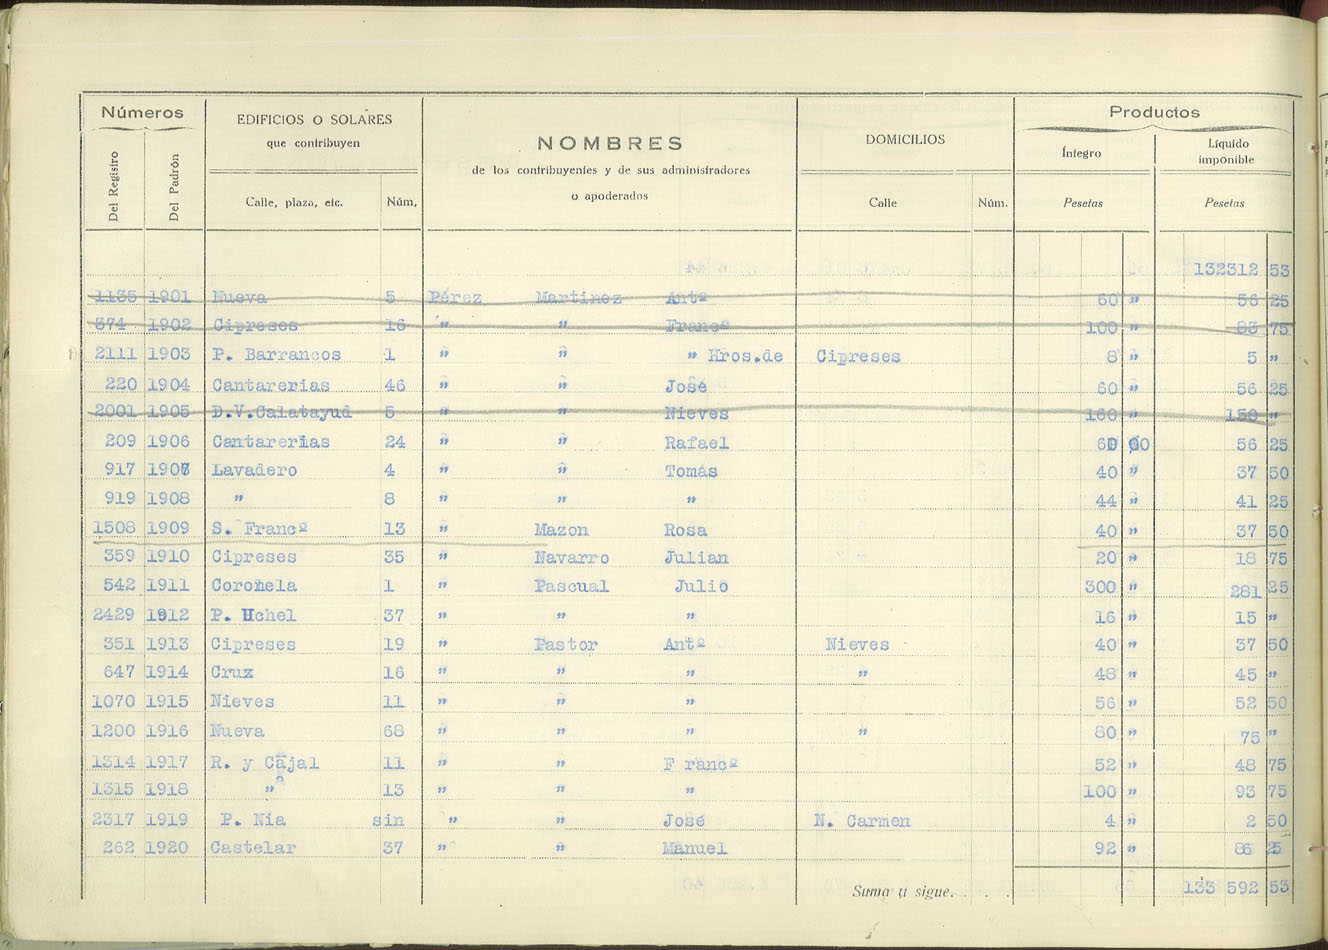 Números
EDIFICIOS O SOLARES
que contribuyen
NOMBRES
de los contribuyentes y de sus administradores
o apoderados
DOMICILIOS
Productos
Íntegro
Líquido imponible
Del Registro
Del Padrón
Calle, plaza, etc.
Núm,
Calle
Núm.
Pesetas
Pesetas
132312 53
1135 1901 Nueva 5 Pérez Martinez Antª 60 " 56 25
374 1902 Cipreses 16 " " Francº 100 " 83 75
2111 1903 P. Barrancos 1 " " " Hros.de Cipreses 8 " 5 "
220 1904 Cantarerias 46 " " José 60 " 56 25
2001 1905 D.V.Calatayud 5 " " Nieves 160 " 150 "
209 1906 Cantarerias 24 " " Rafael 60 00 56 25
917 1907 Lavadero 4 " " Tomás 40 " 37 50
919 1908 " 8 " " " 44 " 41 25
1508 1909 S. Francº 13 " Mazon Rosa 40 " 37 50
359 1910 Cipreses 35 " Navarro Julian 20 " 18 75
542 1911 Coroñela 1 " Pascual Julio 300 " 281 25
2429 1912 P. Uchel 37 " " " 16 " 15 "
351 1913 Cipreses 19 " Pastor Antº Nieves 40 " 37 50
647 1914 Cruz 16 " " " " 48 " 45 "
1070 1915 Nieves 11 " " " 56 " 52 50
1200 1916 Nueva 68 " " " " 80 " 75 "
1314 1917 R. y Cajal 11 " " F rancº 52 " 48 75
1315 1918 " 13 " " " 100 " 93 75
2317 1919 P. Nia sin " " José N. Carmen 4 " 2 50
262 1920 Castelar 37 " " Manuel 92 " 86 25
Suma y sigue. . . . 133 592 53